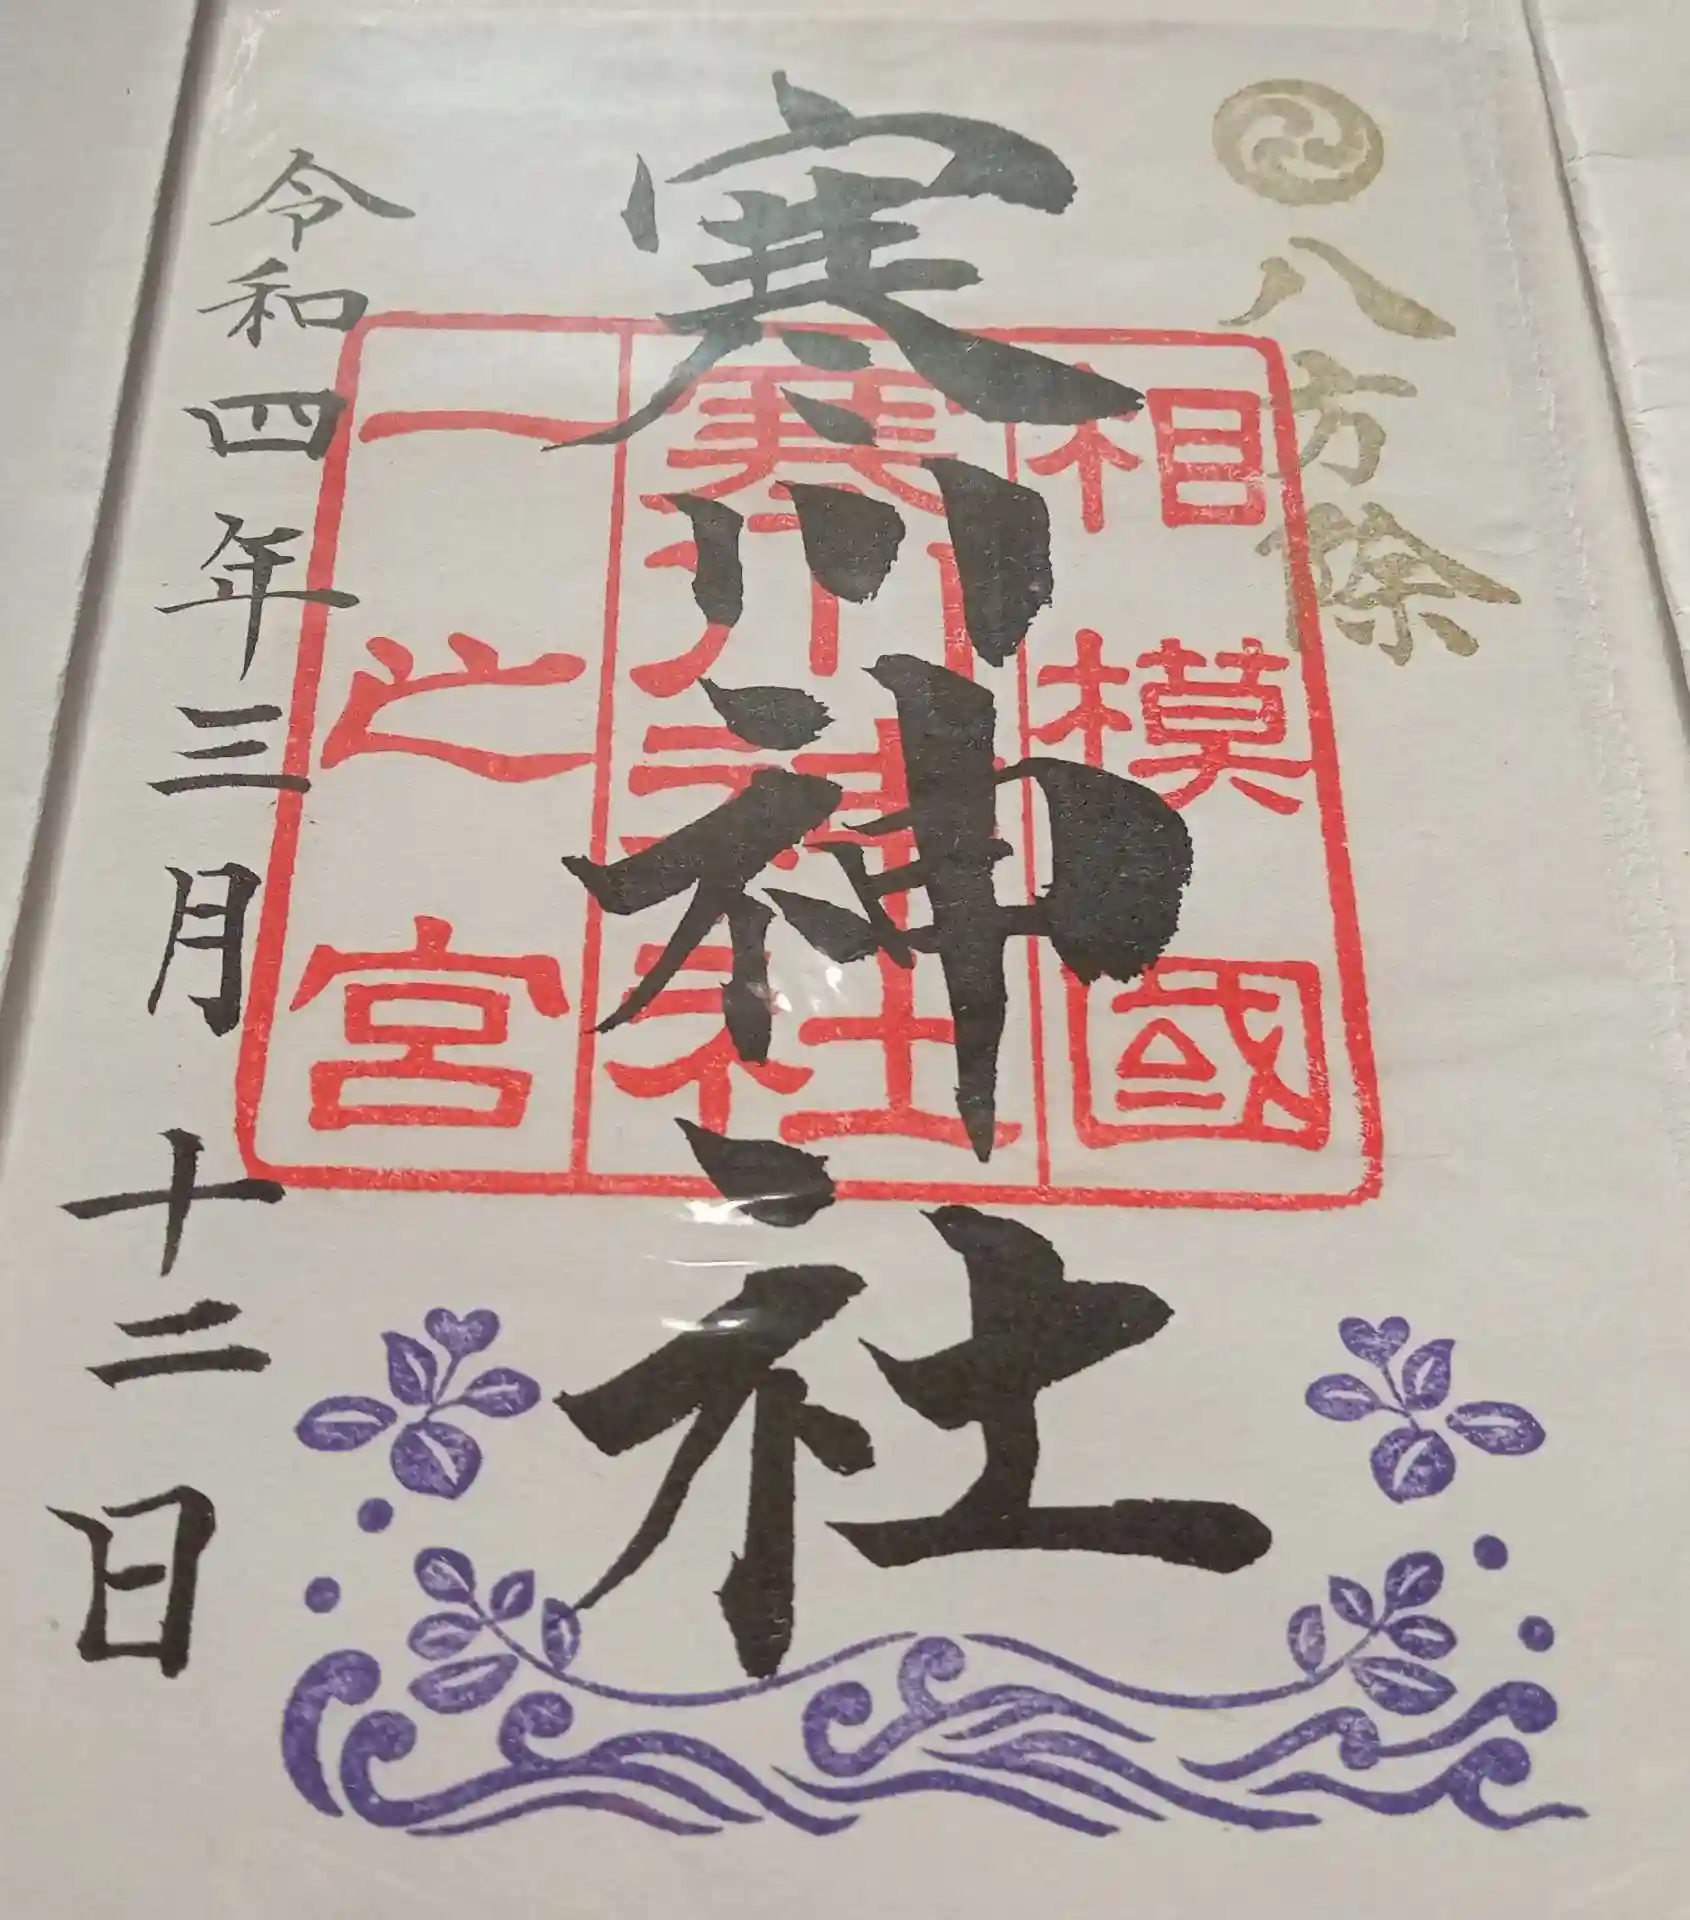 八方除
寒川神社
相模國
寒川神社
一之宮
令和四年三月十二日